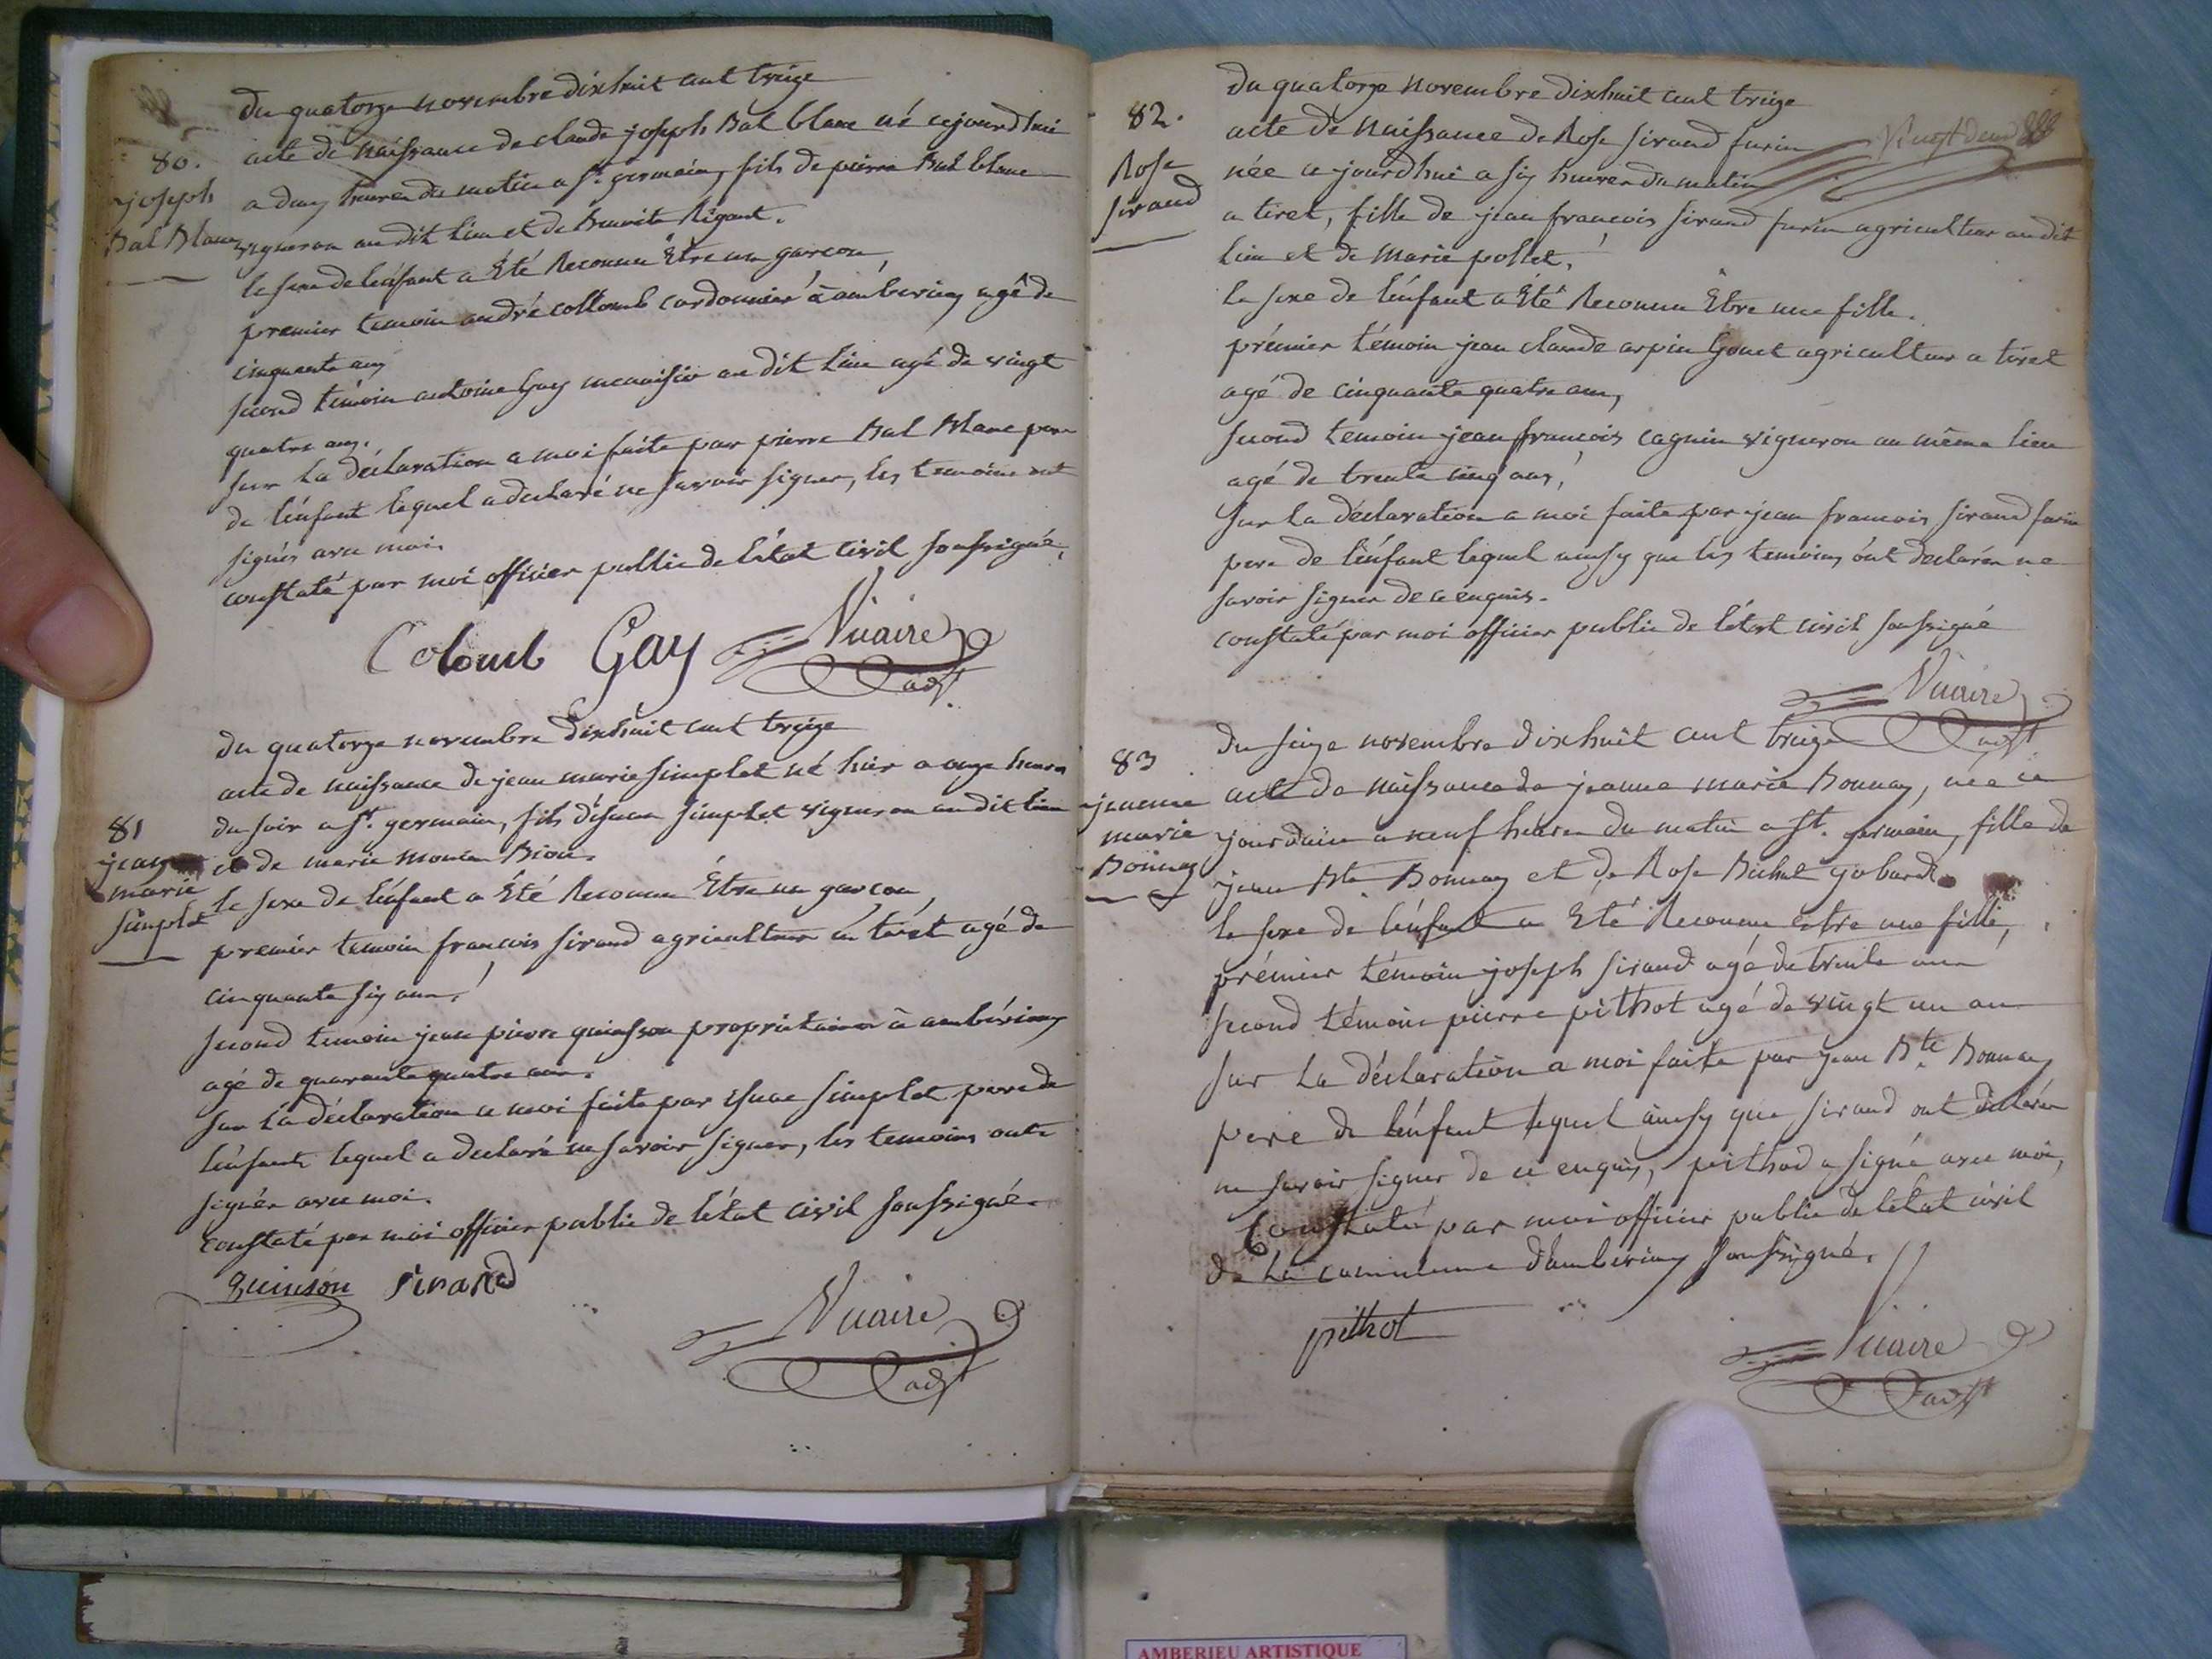 du quatorze novembre dixhuit cent treize
80.
joseph
Bal Blanc
acte de naissance de claude joseph Bal blanc né cejourdhui
a deux heures du matin a st. germain, fils de pierre Bal blanc
vigneron au dit lieu et de Benoite Rigaut.
le sexe de lénfant a Été Reconnu Être un garcon,
premier temoin andré collomb cordonnier à ambérieu agé de
cinquante ans
second témoin antoine Gay menuisier au dit lieu agé de vingt
quatre ans.
sur la déclaration a moi faite par pierre Bal Blanc pere
de lénfant lequel a declaré ne savoir signer, les temoins ont
signés avec moi.
constaté par moi officier public de létat civil soussigné.
Colomb Gay Vicaire
adjt.
du quatorze novembre dixhuit cent treize
81
jean
marie
simplet
acte de naissance de jean marie simplet né hier a onze heures
du soir a st. germain, fils d'isaac simplet vigneron au dit lieu
et de marie
le sexe de lénfant a Été Reconnu Être un garcon,
premier temoin francois sirand agriculteur a tiret agé de
cinquante six ans,
second temoin jean pierre quinsson proprietaire à ambérieux
agé de quarante quatre ans.
sur la déclaration a moi faite par isaac simplet pere de
lénfant lequel a declaré ne savoir signer, les temoins ont
signés avec moi.
constaté par moi officier public de létat civil soussigné.
quinson sirand
Vicaire
adjt
du quatorze novembre dixhuit cent treize
82.
Rose
sirand
acte de naissance de Rose sirand furin
née ce jourdhui a six heures du matin
a tiret, fille de jean francois sirand furin agriculteur au dit
lieu et de marie pollet,
le sexe de lénfant a Été Reconnu Être une fille.
prémier témoin jean claude arpin Gonet agriculteur a tiret
agé de cinquante quatre ans,
second temoin jean francois cagnin vigneron au même lieu
agé de trente cinq ans,
sur la déclaration a moi faite par jean francois sirand furin
pere de lénfant lequel ainsy que les temoins ónt declarés ne
savoir signer de ce enquis.
constaté par moi officier public de létat civil soussigné
Vicaire
adjt
83
jeanne
marie
Bonnay
du seize novembre dixhuit cent treize
acte de naissance de jeanne marie Bonnay, née ce
jourdhui a neuf heures du matin a st. germain, fille de
jean Bte. Bonnay et de Rose Bichat gobard.
le sexe de lénfant a Été Reconnu estre une fille,
prémier témoin joseph sirand agé de trente ans
second témoin pierre pithot agé de vingt un an
sur la déclaration a moi faite par jean Bte Bonnay
pere de lénfant lequel ainsy que sirand ont déclarés
ne savoir signer de ce enquis, pithod a signé avec moi,
Constaté par moi officier public de létat civil
de la commune dambérieux soussigné.
pithot
Vicaire
adjt
AMBERIEU ARTISTIQUE